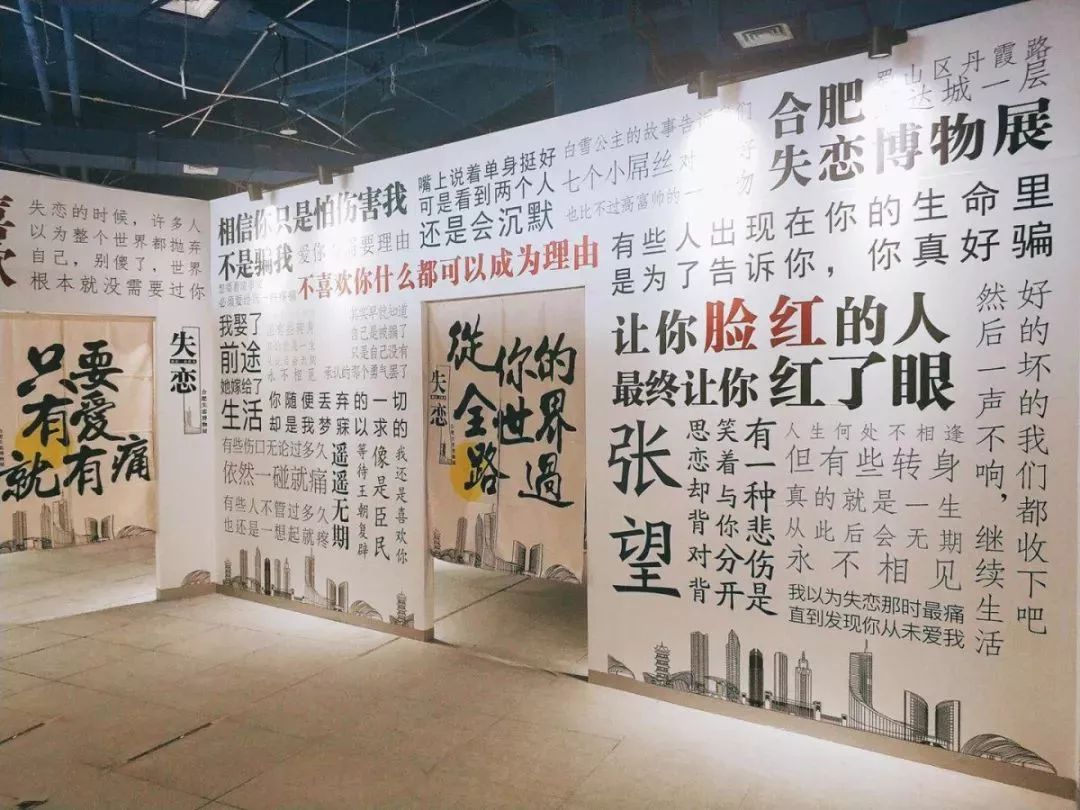 喜
欢
失恋的时候，许多人
以为整个世界都抛弃
自己，别傻了，世界
根本就没需要过你
只要
有爱
就有痛
失恋
相信你只是怕伤害我
不是骗我
爱你
需要理由
不喜欢你什么都可以成为理由
嘴上说着单身挺好
可是看到两个人
还是会沉默
白雪公主的故事告诉
们
七个小屌丝对
也比不过高富帅的一
勿
我娶了
前途
她嫁给了
生活
其实早就知道
自己是被骗了
只是自己没有
承认的那个勇气罢了
永不相见
你随便丢弃的一切
却是我梦寐以求的
遥遥无期
等待王朝复辟
像是臣民
我还是喜欢你
有些伤口无论过多久
依然一碰就痛
有些人不管过多久
也还是一想起就疼
失恋
從你的
全世界
路過
蜀山区丹霞路
达城一层
合肥
失恋博物展
有些人出现在你的生命里
是为了告诉你，你真好骗
让你脸红的人
最终让你红了眼
张望
有一种悲伤是
笑着与你分开
思恋却背对背
人生何处不相逢
但有些转身
真的就是一生
从此后会无期
永不相见
我以为失恋那时最痛
直到发现你从未爱我
好的坏的我们都收下吧
然后一声不响，继续生活